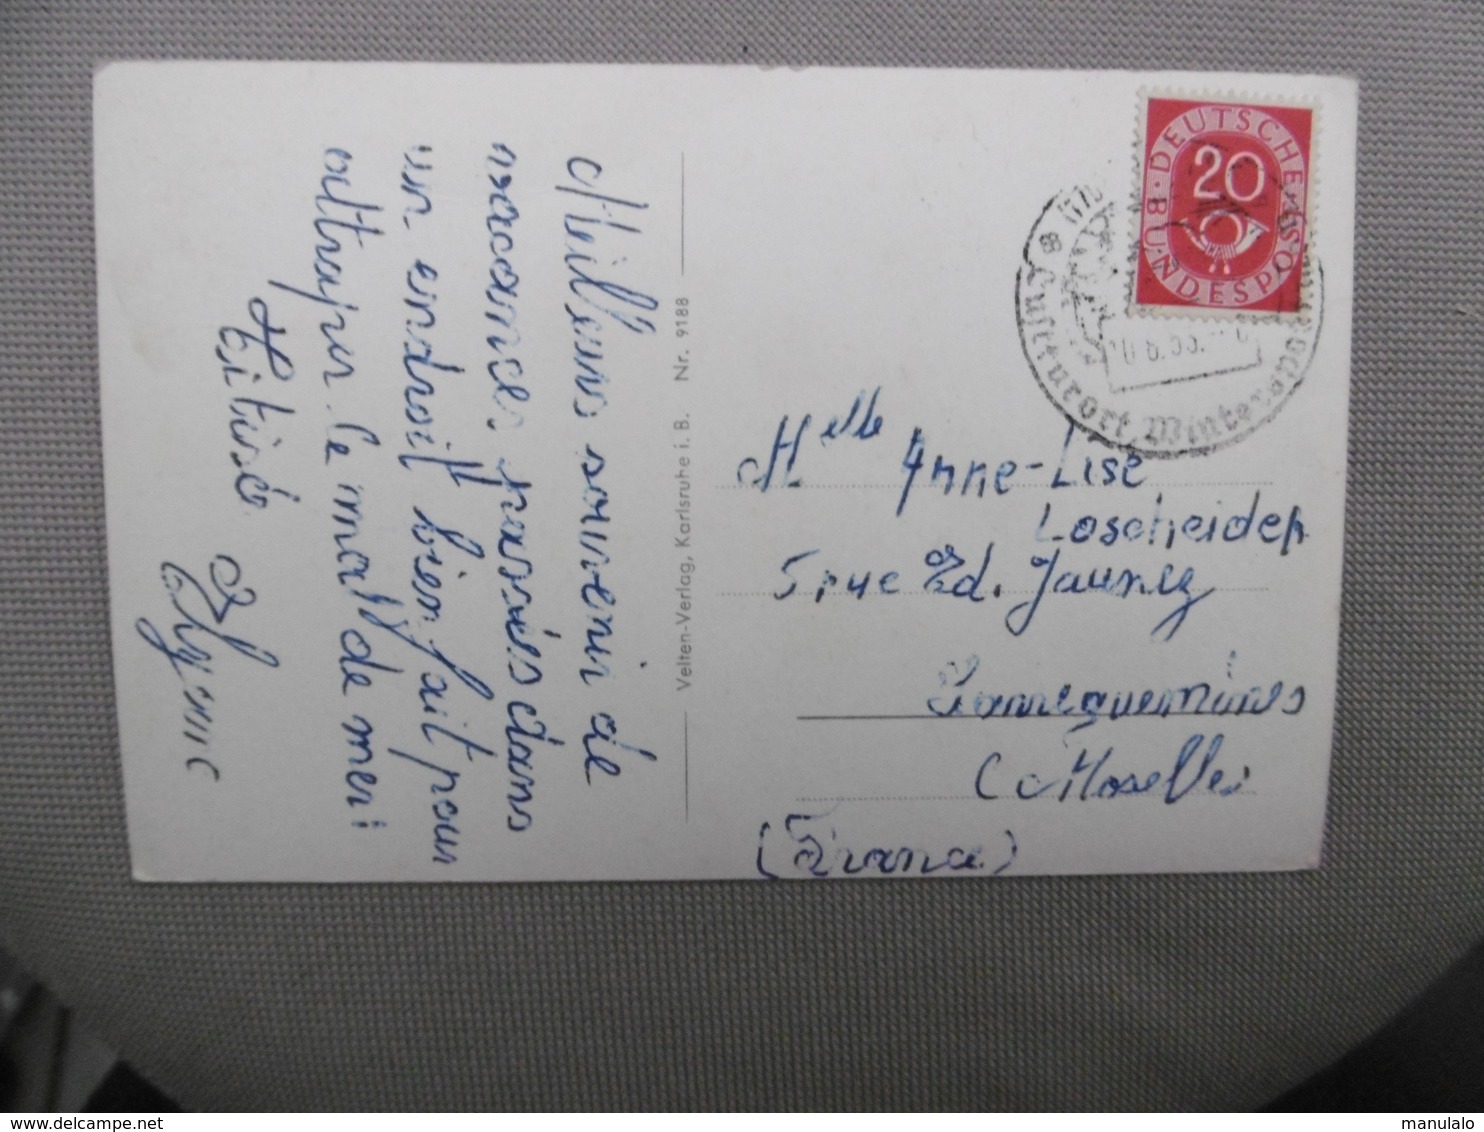 Meilleurs souvenir de
vacances passées dans
un endroit bien fait pour
attraper le mal de mer!
Titisé
Velten-Verlag, Karlsruhe i. B. Nr. 9188
DEUTSCHE BUNDESPOST
20
Luftkurort Wintersport
Melle Anne-Lise
Loscheider
5, rue Ed. Jaunez
Sarreguemines
(Moselle)
(France)
manulalo